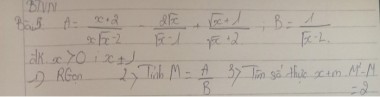 BTVN
Bài 5. A = x+2 / x√x-2 - 2√x / √x-1 + √x+1 / √x+2 ; B = 1 / √x-2
ĐK x>0 ; x≠1
1) RGọn 2) Tính M = A/B 3) Tìm số thực x+m M²-M
= 2